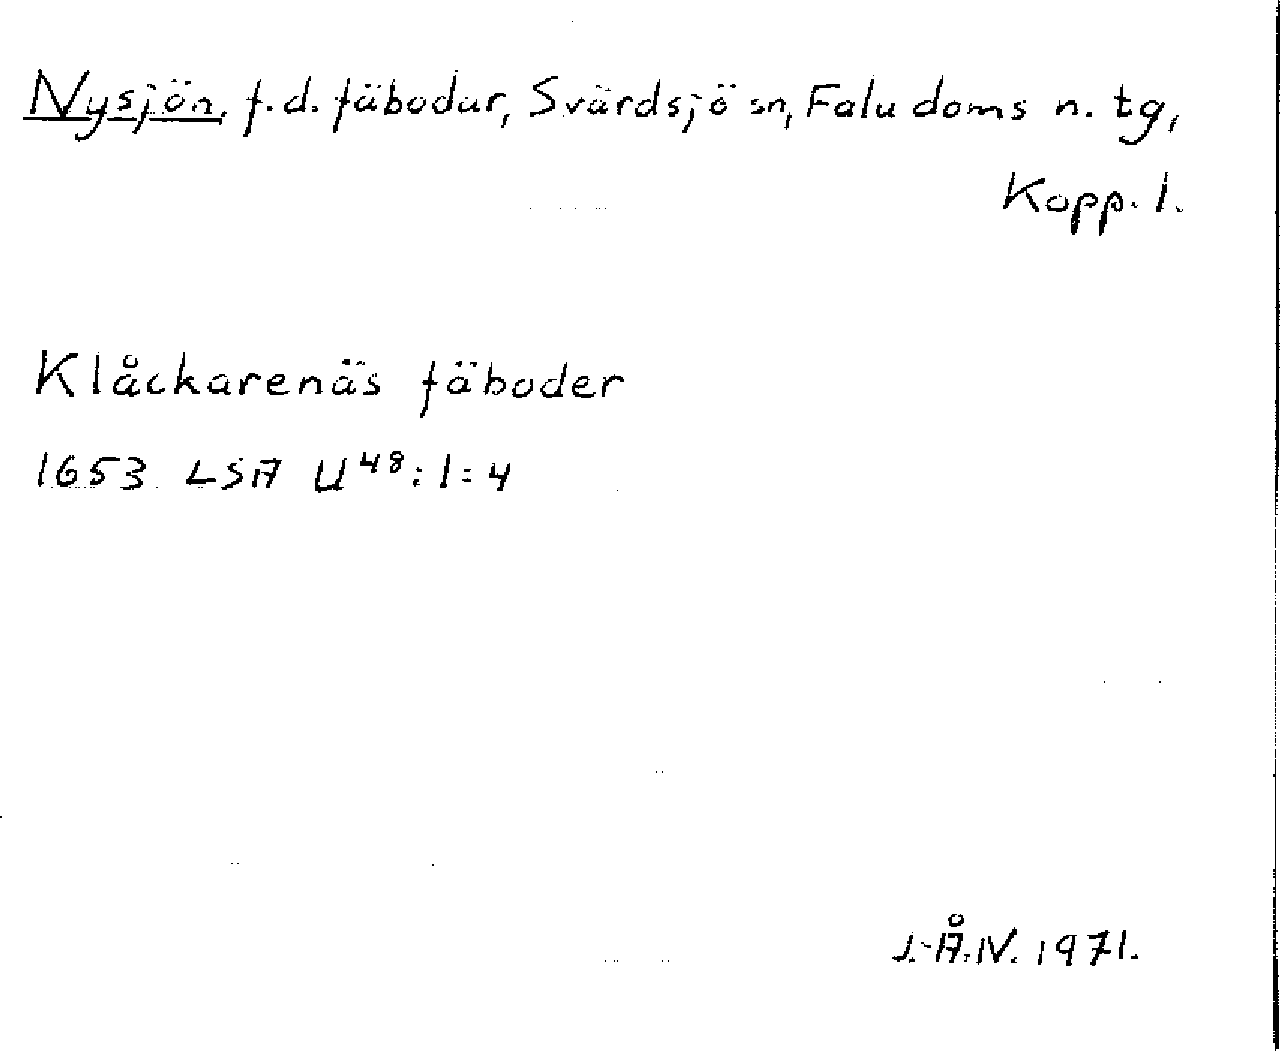 Nysjön, f.d. fäbodar, Svärdsjö sn, Falu doms n. tg,
Kopp. l.
Klåckarenäs fäboder
1653 LSA U48:1:4
J.-Å.W. 1971.